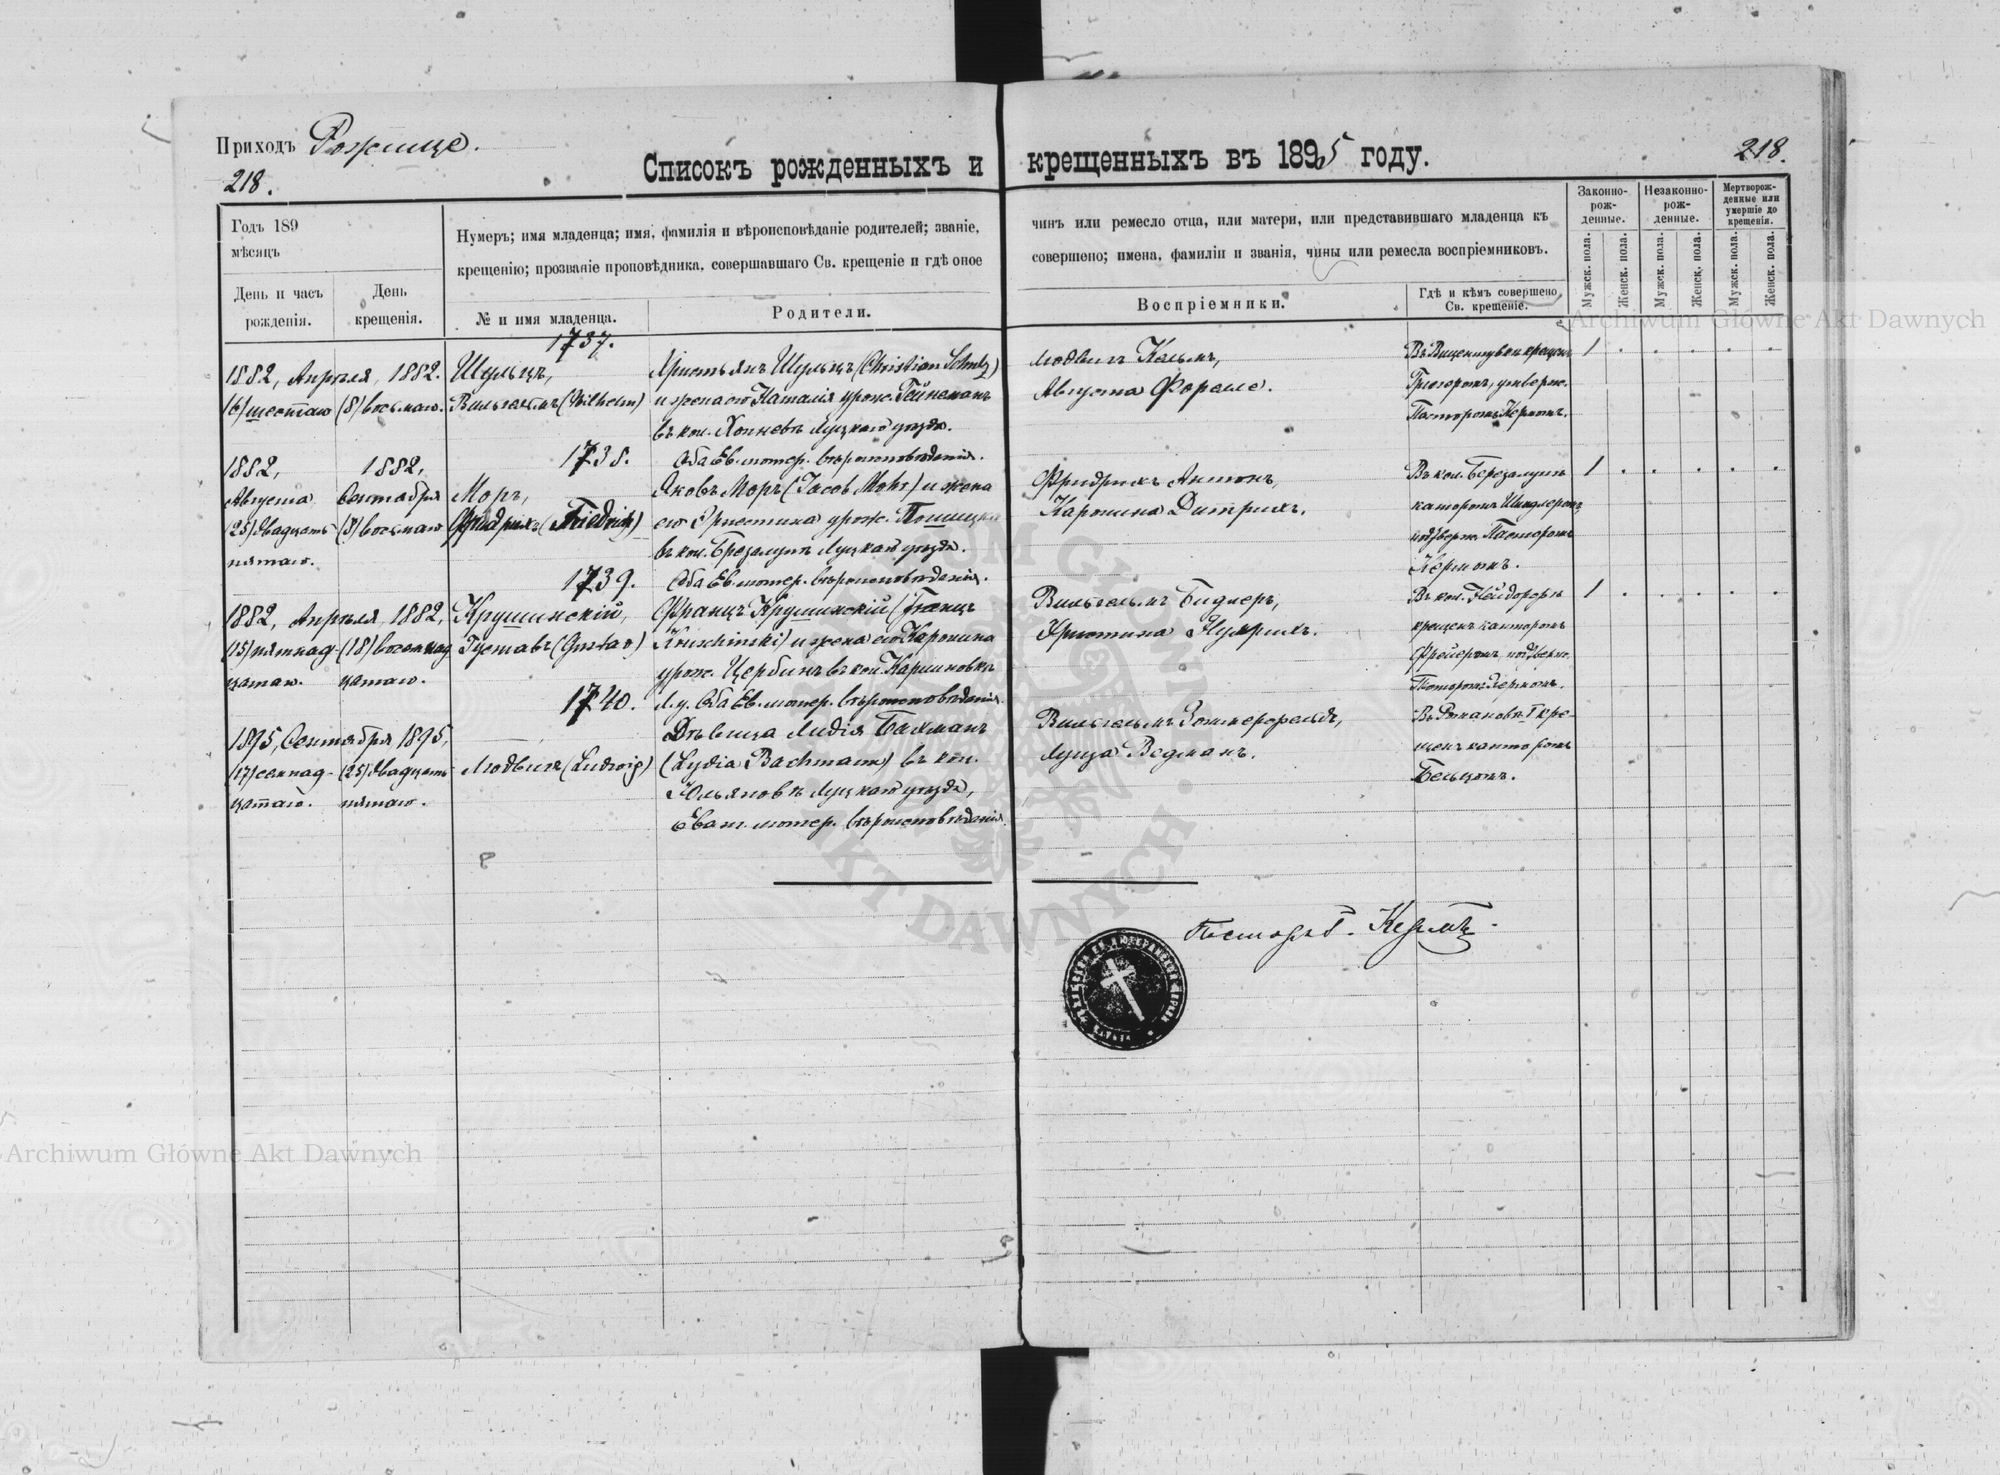 Приходъ Рожище.
218.
Списокъ рожденныхъ и крещенныхъ въ 1895 году.
218.
Годъ 189
мѣсяцъ
День и часъ рожденія.
День крещенія.
Нумеръ; имя младенца; имя, фамилія и вѣроисповѣданіе родителей; званіе,
крещенію; прозваніе проповѣдника, совершавшаго Св. крещеніе и гдѣ оное
№ и имя младенца.
Родители.
чинъ или ремесло отца, или матери, или представившаго младенца къ
совершено; имена, фамиліи и званія, чины или ремесла воспріемниковъ.
Воспріемники.
Гдѣ и кѣмъ совершено Св. крещеніе.
Законно-рож-денные.
Незаконно-рож-денные.
Мертворож-денные или умершіе до крещенія.
Мужск. пола.
Женск. пола.
Мужск. пола.
Женск. пола.
Мужск. пола.
Женск. пола.
1737.
1882, Апрѣля, 1882.
(6) шестаго (8) восьмаго.
Шульцъ,
Вильгельмъ (Wilhelm)
Христьянъ Шульцъ (Christian Schulz)
и жена его Наталія урож. Гейнеманъ
въ кол. Копневъ Луцкаго уѣзда.
Оба Ев. лютер. вѣроисповѣданія.
Людвигъ Кельмъ,
Августа
крещенъ
Пасторомъ Кермомъ.
1
1738.
1882,
Августа
(25) двадцать
пятаго.
1882,
Сентября
(8) восьмаго
Моръ,
Фридрихъ (Friedrich)
Яковъ Моръ (Jacob Mohr) и жена
его Эрнестина урож.
въ кол. Брезалупъ Луцкаго уѣзда.
Оба Ев. лютер. вѣроисповѣданія.
Фридрихъ Антонъ,
Каролина Дитрихъ.
Въ кол. Березалупъ
канторомъ
подтверж. Пасторомъ
Кермомъ.
1
1739.
1882, Апрѣля, 1882,
(15) пятнад-
цатаго.
(18) восемнад
цатаго.
Крушинскій,
Густавъ (Gustav)
Францъ Крушинскій (Franz
Kruschinski) и жена его Каролина
урож. Цербинъ въ кол. Каршновка
Л. у. Оба Ев. лютер. вѣроисповѣданія.
Вильгельмъ Бидлеръ,
Христина
Въ кол. Нейдорфъ
крещенъ канторомъ
Фрейеромъ, подтверж.
Пасторомъ Кермомъ.
1
1740.
1895, Сентября 1895,
(17) семнад-
цатаго.
(25) двадцать
пятаго.
Людвигъ (Ludwig)
Дѣвица Лидія Бахманъ
(Lydia Bachmann) въ кол.
Юльяновъ Луцкаго уѣзда,
Еванг. лютер. вѣроисповѣданія.
Вильгельмъ Зоммерфельдъ,
Луиза Ведманъ.
Въ Романовкѣ кре-
щенъ канторомъ
Бельцомъ.
Пасторъ Г. Кермъ.
Archiwum Główne Akt Dawnych
Archiwum Główne Akt Dawnych